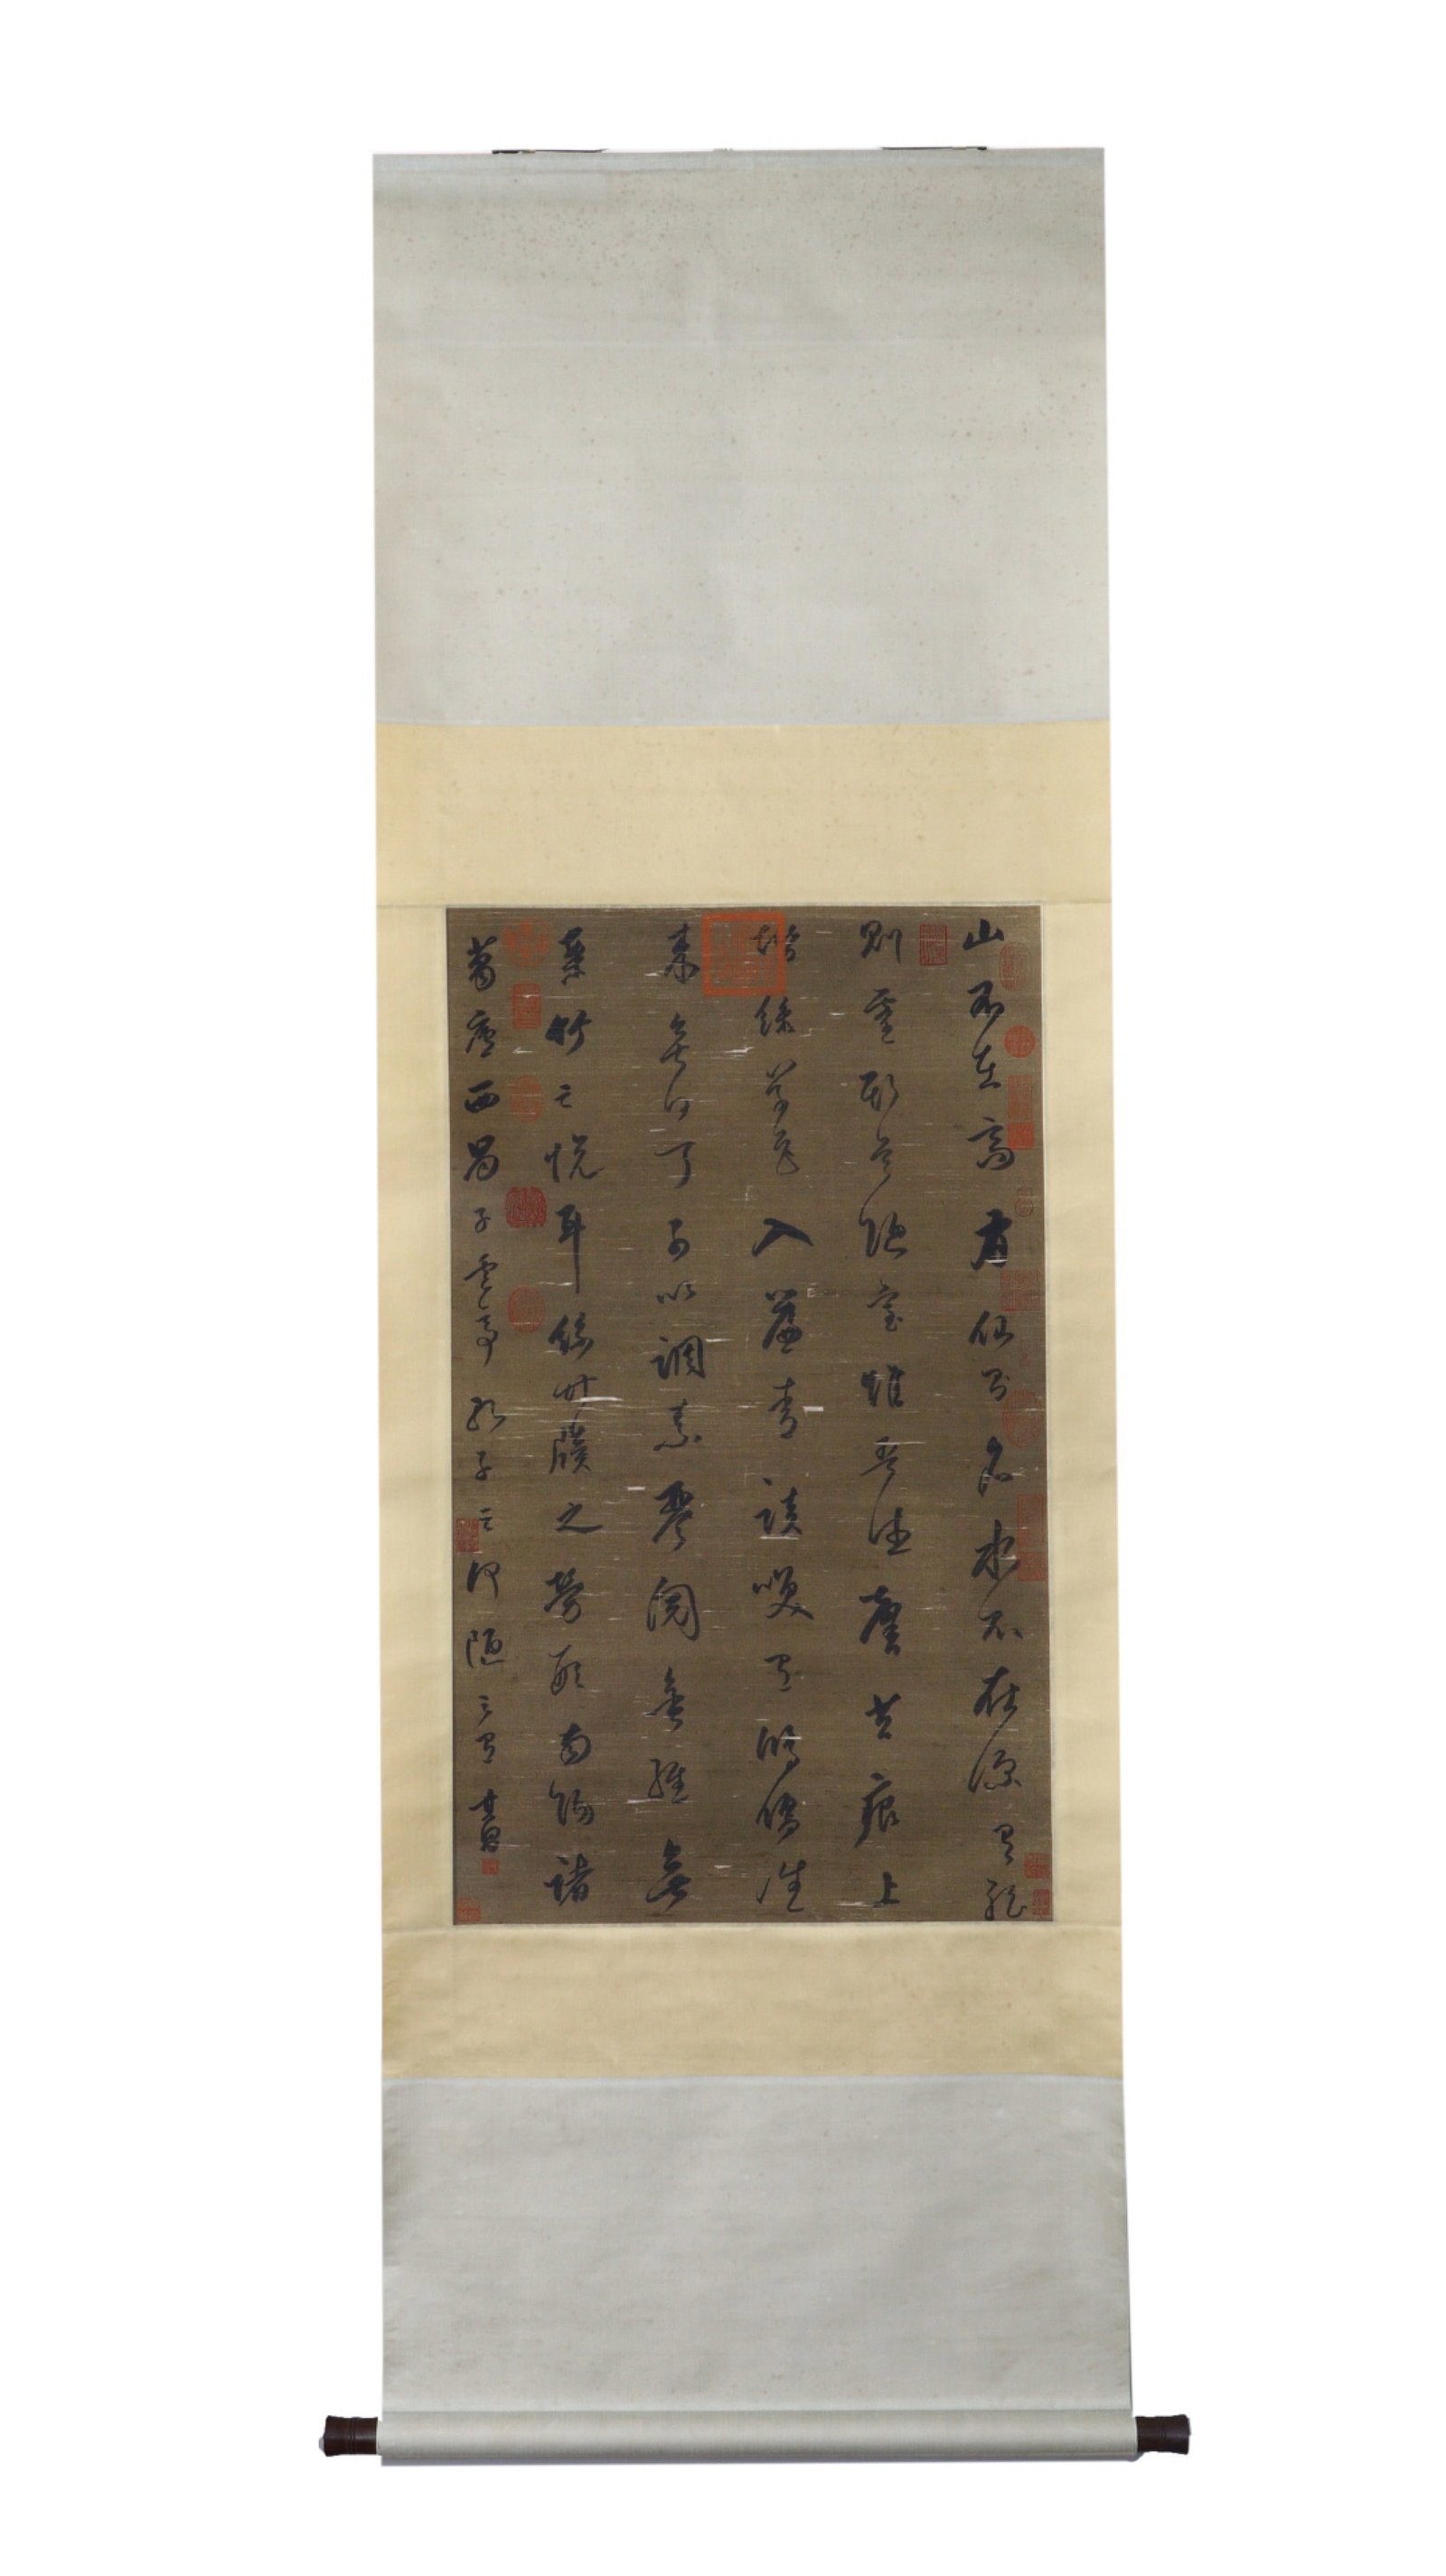 山不在高有仙則名水不在深有龍
則靈斯是陋室惟吾德馨苔痕上
階綠草色入簾青談咲有鴻儒往
來無白丁可以調素琴閱金經無
竹之悅耳 牘之勞形南陽諸
葛廬西蜀子雲亭孔子云何陋之有 其昌